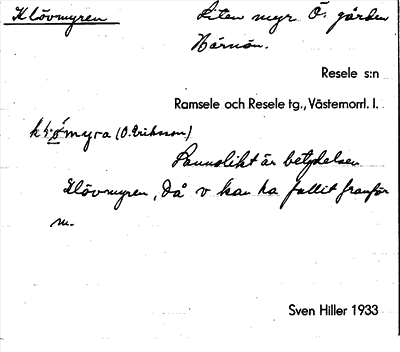 Klövmyren
Liten myr Ö. gården
Närnön.
Resele s:n
Ramsele och Resele tg., Västernorrl. l.
myra (O. Eriksson)
Sannolikt är betydelsen
Klövmyren, då v kan ha fallit framför
m.
Sven Hiller 1933